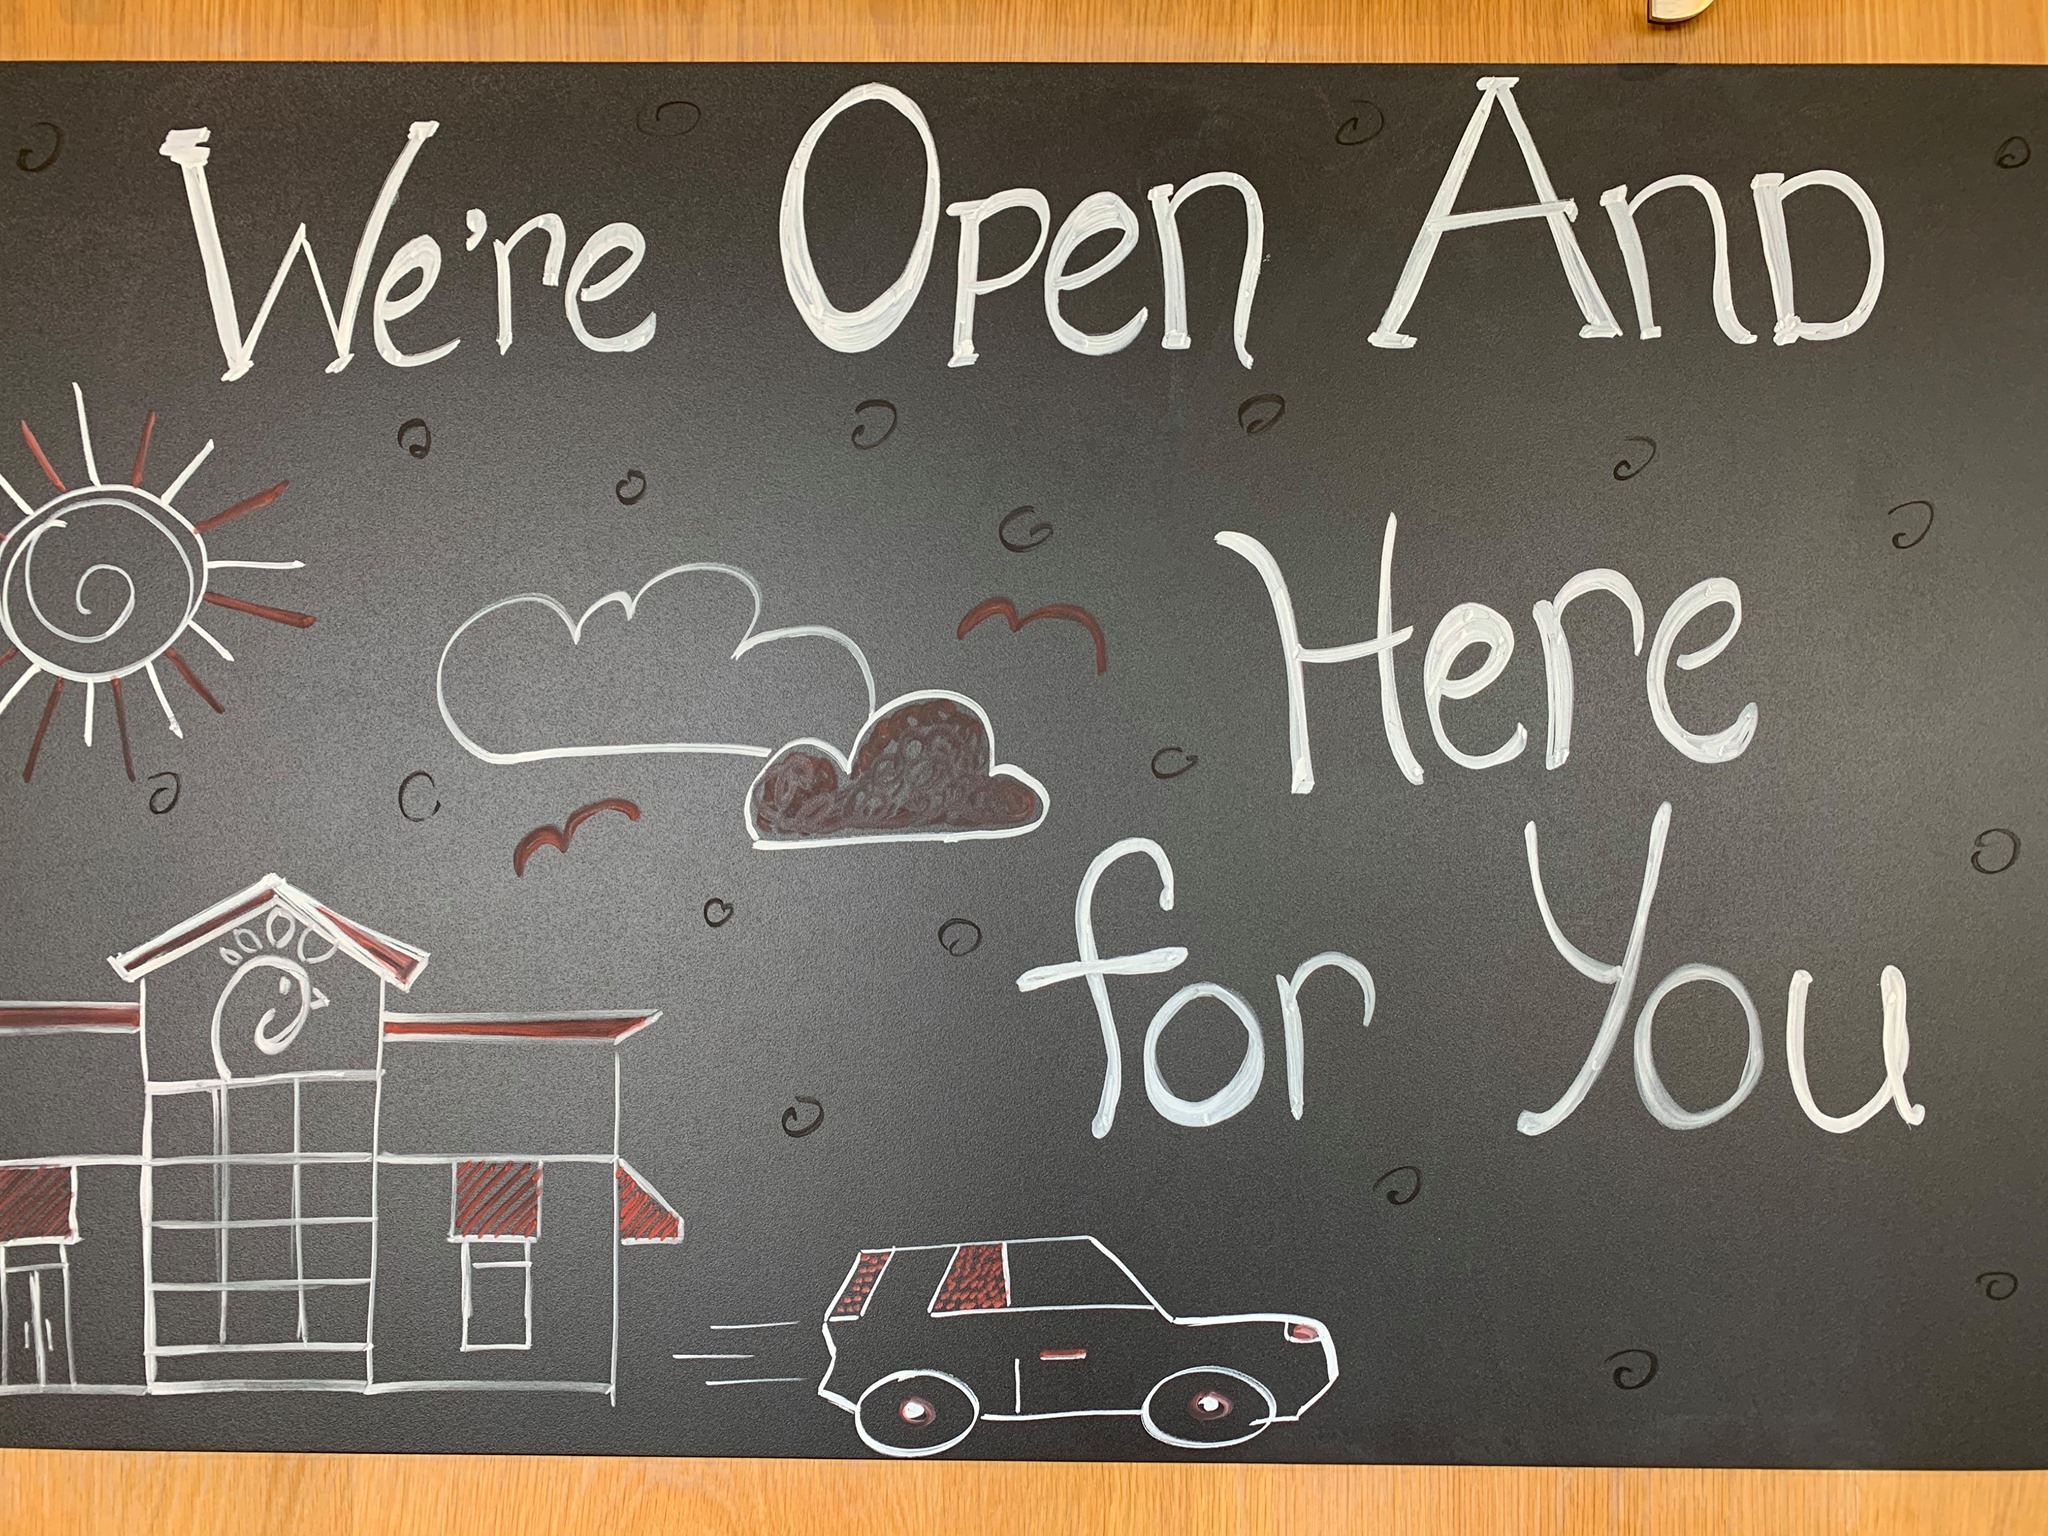 We're Open And
Here
for You